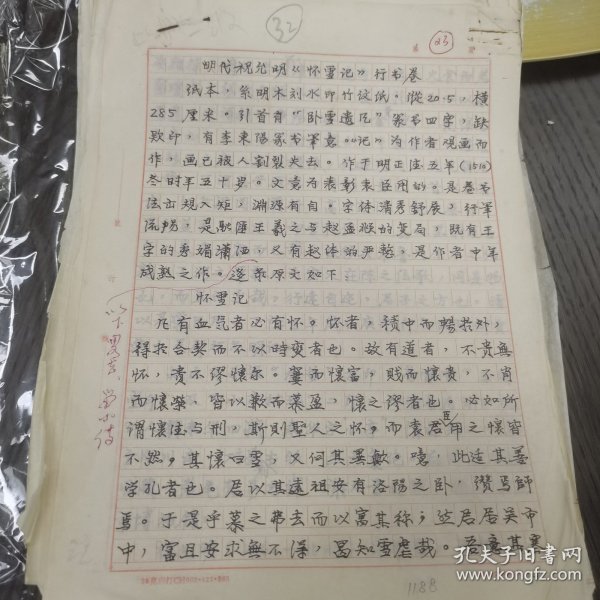 32
23
明代祝允明《怀雪记》行书卷
纸本,系明木刻水印竹纹纸。纵20.5,横
285厘米。引首有"卧雪遗
篆书四字,缺
款印,有李东阳篆书笔意。"记"为作者观画而
作,画已被人割裂失去。作于明正德五年(1510)
冬时年五十岁。文意为表彰袁臣用的。是卷书
法出规入矩,渊源有自。字体清秀舒展,行笔
流畅,是融汇王羲之与赵孟頫的
局,既有王
字的秀媚潇洒,又有赵体的严整,是作者中年
成熟之作。逐录原文如下:
怀雪记
凡有血气者必有怀。怀者,積中而暢於外,
得於合契而不以時变者也。故有道者,不贵無
怀,贵不谬懷尔。窶而懷富,賤而懷贵,不肖
而懷榮,皆以歉而慕盈,懷之谬者也。必如所
謂懷德与刑,斯則聖人之怀,而袁君臣用之懷皆
不然,其懷曰雪,又何其
。噫,此适其善
学孔者也。居以其遠祖安有洛陽之卧,
焉師
焉。于是乎慕之弗去而以寓其称;然居居吴市
中,富且安求無不得,曷知雪虐哉。
意其寒
以下
1188
孔夫子旧书网
www.kongfz.com